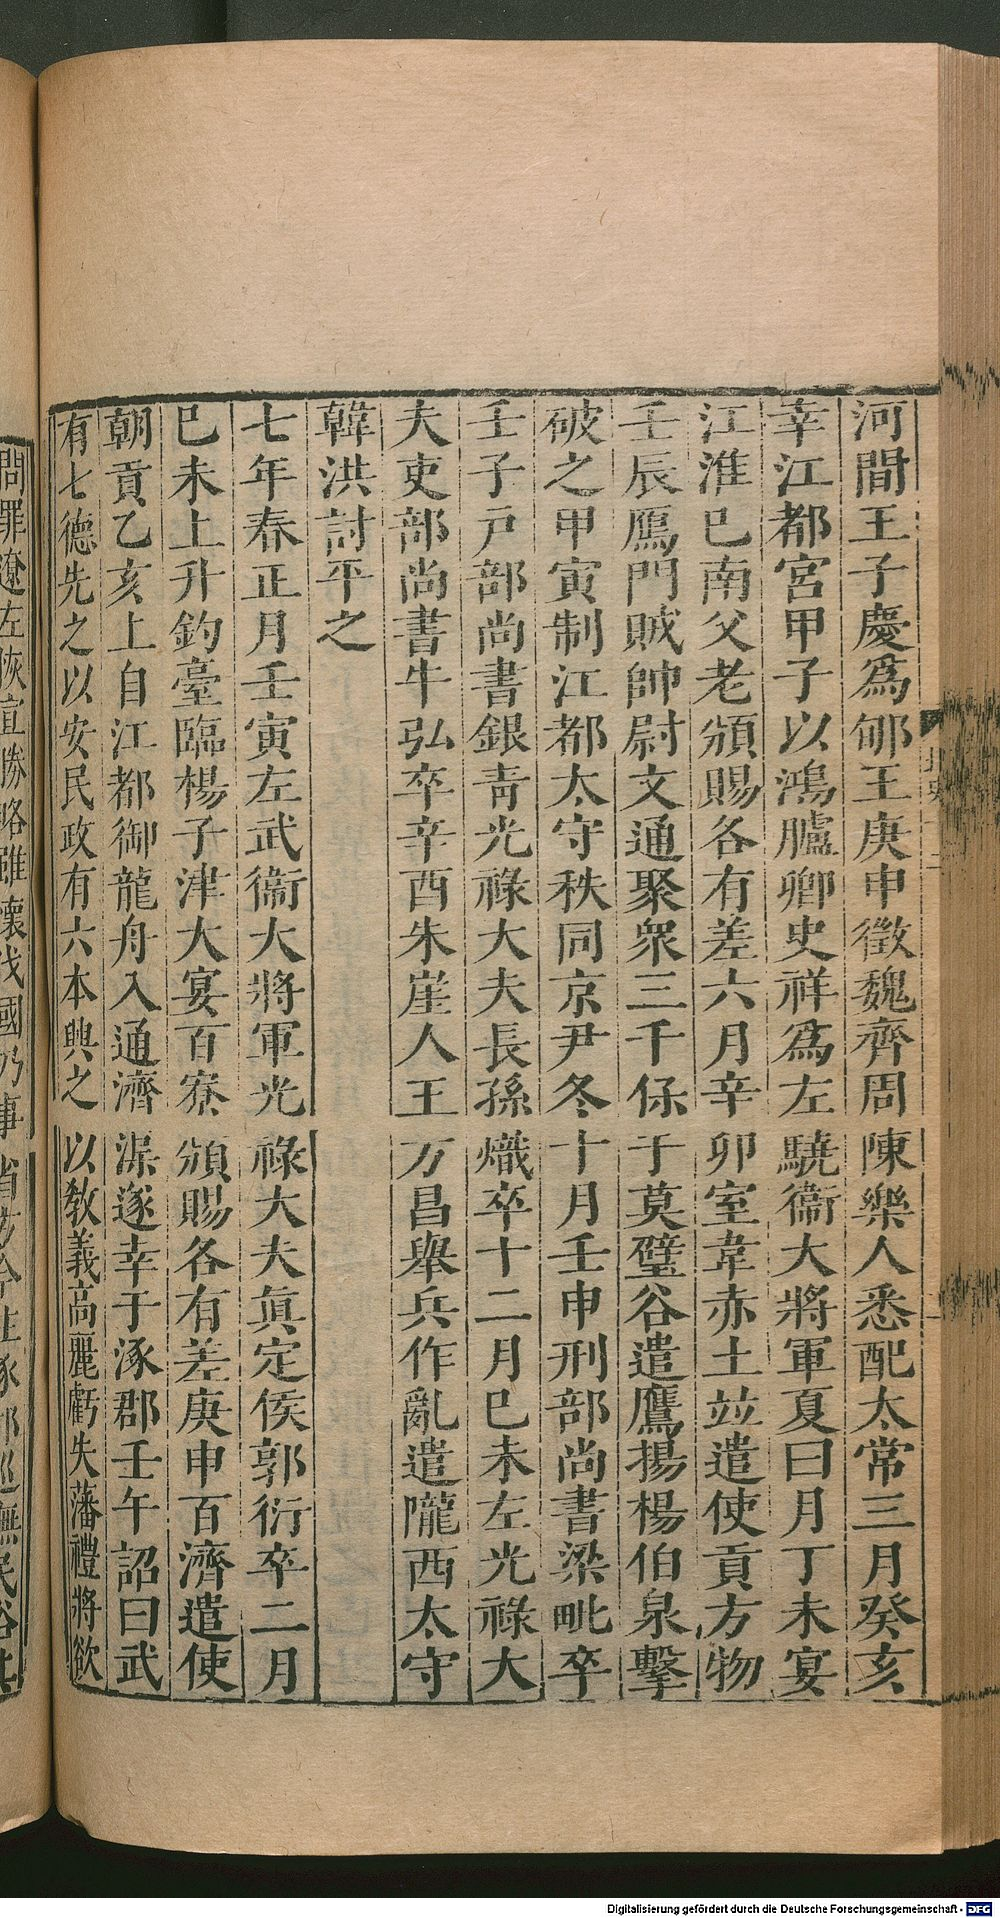 河間王子慶爲郇王庚申徵魏齊周陳樂人悉配太常三月癸亥
幸江都宮甲子以鴻臚卿史祥爲左驍衞大將軍夏曰月丁未宴
江淮已南父老頒賜各有差六月辛卯室韋赤土竝遣使貢方物
壬辰鴈門賊帥尉文通聚衆三千保于莫壁谷遣鷹揚楊伯泉擊
破之甲寅制江都太守秩同京尹冬十月壬申刑部尚書梁毗卒
壬子戸部尚書銀青光祿大夫長孫熾卒十二月巳未左光祿大
夫吏部尚書牛弘卒辛酉朱崖人王万昌舉兵作亂遣隴西太守
韓洪討平之
七年春正月壬寅左武衞大將軍光祿大夫眞定侯郭衍卒二月
巳未上升釣臺臨楊子津大宴百寮頒賜各有差庚申百濟遣使
朝貢乙亥上自江都御龍舟入通濟渠遂幸于涿郡壬午詔曰武
有七德先之以安民政有六本興之以敎義高麗虧失藩禮將欲
問罪遼左恢宣勝略雖懷伐國乃事省方今往涿郡巡撫民俗其
Digitalisierung gefördert durch die Deutsche Forschungsgemeinschaft - DFG